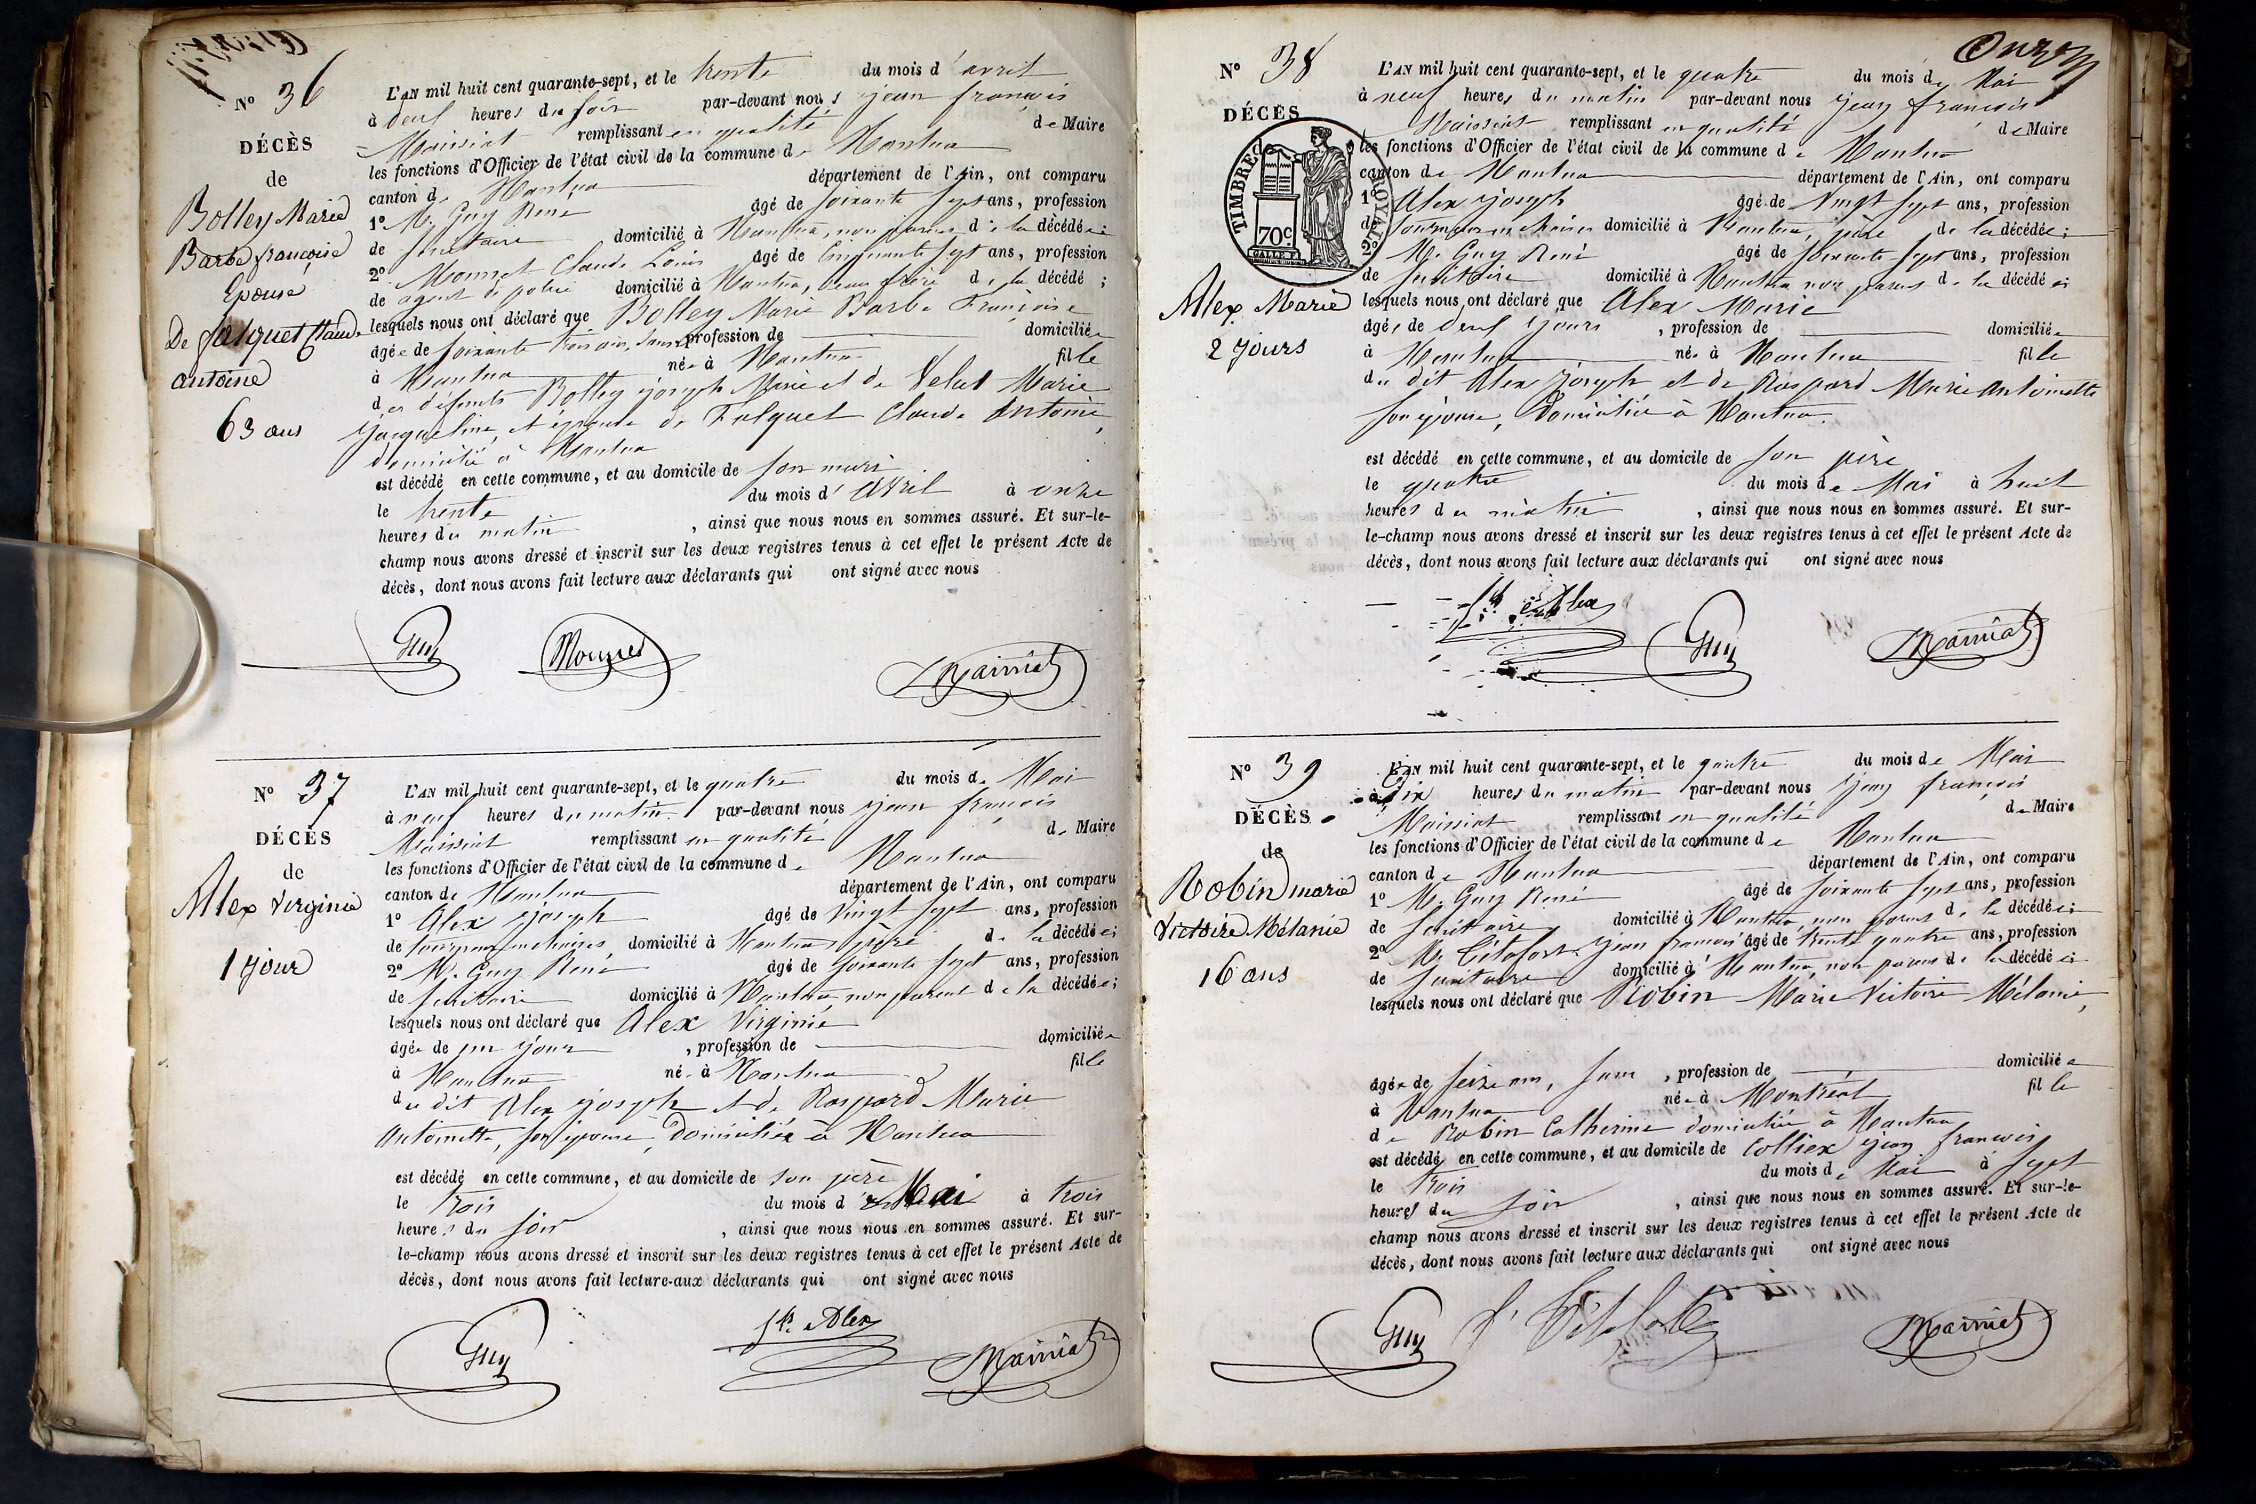 N° 36
DÉCÈS
de
Bolley Marie
Barbe françoise
Epouse
De Falquet Claude
antoine
63 ans
L'AN mil huit cent quarante-sept, et le trente du mois d'avril
à deux heures du soir par-devant nous jean françois
Maissiat remplissant en qualité de Maire
les fonctions d'Officier de l'état civil de la commune de Nantua
canton de Nantua département de l'Ain, ont comparu
1° M. Guy René âgé de soixante sept ans, profession
de secrétaire domicilié à Nantua, non parent de la décédée;
2° Monnet Claude Louis âgé de Cinquante sept ans, profession
de agent de police domicilié à Nantua, beau frère de la décédé ;
lesquels nous ont déclaré que Bolley Marie Barbe Françoise
âgée de soixante trois ans, sans profession de domiciliée
à Nantua née à Nantua fille
des défunts Bolley joseph Marie et de Marie
jacqueline, et épouse de Falquet Claude Antoine,
domicilié à Nantua
est décédé en cette commune, et au domicile de son mari
le trente du mois d'Avril à onze
heures du matin , ainsi que nous nous en sommes assuré. Et sur-le-
champ nous avons dressé et inscrit sur les deux registres tenus à cet effet le présent Acte de
décès, dont nous avons fait lecture aux déclarants qui ont signé avec nous
Guy Monnet Maissiat
N° 37
DÉCÈS
de
Alex Virginie
1 jour
L'AN mil huit cent quarante-sept, et le quatre du mois de Mai
à neuf heures du matin par-devant nous jean françois
Maissiat remplissant en qualité de Maire
les fonctions d'Officier de l'état civil de la commune de Nantua
canton de Nantua département de l'Ain, ont comparu
1° Alex joseph âgé de Vingt sept ans, profession
de tourneur en chaises, domicilié à Nantua, père de la décédée;
2° M. Guy René âgé de soixante sept ans, profession
de secrétaire domicilié à Nantua non parent de la décédée;
lesquels nous ont déclaré que Alex Virginie
âgée de un jour , profession de domiciliée
à Nantua née à Nantua fille
du dit Alex joseph et de Raspard Marie
Antoinette, son épouse, domiciliée à Nantua
est décédé en cette commune, et au domicile de son père
le trois du mois de Mai à trois
heures du soir , ainsi que nous nous en sommes assuré. Et sur-
le-champ nous avons dressé et inscrit sur les deux registres tenus à cet effet le présent Acte de
décès, dont nous avons fait lecture aux déclarants qui ont signé avec nous
Guy Jh. Alex Maissiat
Onze
N° 38
DÉCÈS
TIMBRE ROYAL
70c
Alex Marie
2 jours
L'AN mil huit cent quarante-sept, et le quatre du mois de Mai
à neuf heures du matin par-devant nous jean françois
Maissiat remplissant en qualité de Maire
les fonctions d'Officier de l'état civil de la commune de Nantua
canton de Nantua département de l'Ain, ont comparu
1° Alex joseph âgé de Vingt sept ans, profession
de tourneur en chaises domicilié à Nantua, père de la décédée;
2° M. Guy René âgé de soixante sept ans, profession
de secrétaire domicilié à Nantua non parent de la décédée;
lesquels nous ont déclaré que Alex Marie
âgée de deux jours , profession de domiciliée
à Nantua née à Nantua fille
du dit Alex joseph et de Raspard Marie Antoinette
son épouse, domiciliée à Nantua.
est décédé en cette commune, et au domicile de son père
le quatre du mois de Mai à huit
heures du matin , ainsi que nous nous en sommes assuré. Et sur-
le-champ nous avons dressé et inscrit sur les deux registres tenus à cet effet le présent Acte de
décès, dont nous avons fait lecture aux déclarants qui ont signé avec nous
Jh. Alex Guy Maissiat
N° 39
DÉCÈS
de
Robin marie
Victoire Mélanie
16 ans
L'AN mil huit cent quarante-sept, et le quatre du mois de Mai
à Dix heures du matin par-devant nous jean françois
Maissiat remplissant en qualité de Maire
les fonctions d'Officier de l'état civil de la commune de Nantua
canton de Nantua département de l'Ain, ont comparu
1° M. Guy René âgé de soixante sept ans, profession
de secrétaire domicilié à Nantua, non parent de la décédée;
2° Mr jean françois âgé de trente quatre ans, profession
de secrétaire domicilié à Nantua, non parent de la décédée
lesquels nous ont déclaré que Robin Marie Victoire Mélanie,
âgée de seize ans, sans , profession de domiciliée
à Nantua née à Montréal fille
de Robin Catherine domiciliée à Nantua
est décédée en cette commune, et au domicile de Colliex jean françois
le trois du mois de Mai à sept
heures du soir , ainsi que nous nous en sommes assuré. Et sur-le-
champ nous avons dressé et inscrit sur les deux registres tenus à cet effet le présent Acte de
décès, dont nous avons fait lecture aux déclarants qui ont signé avec nous
Guy Maissiat